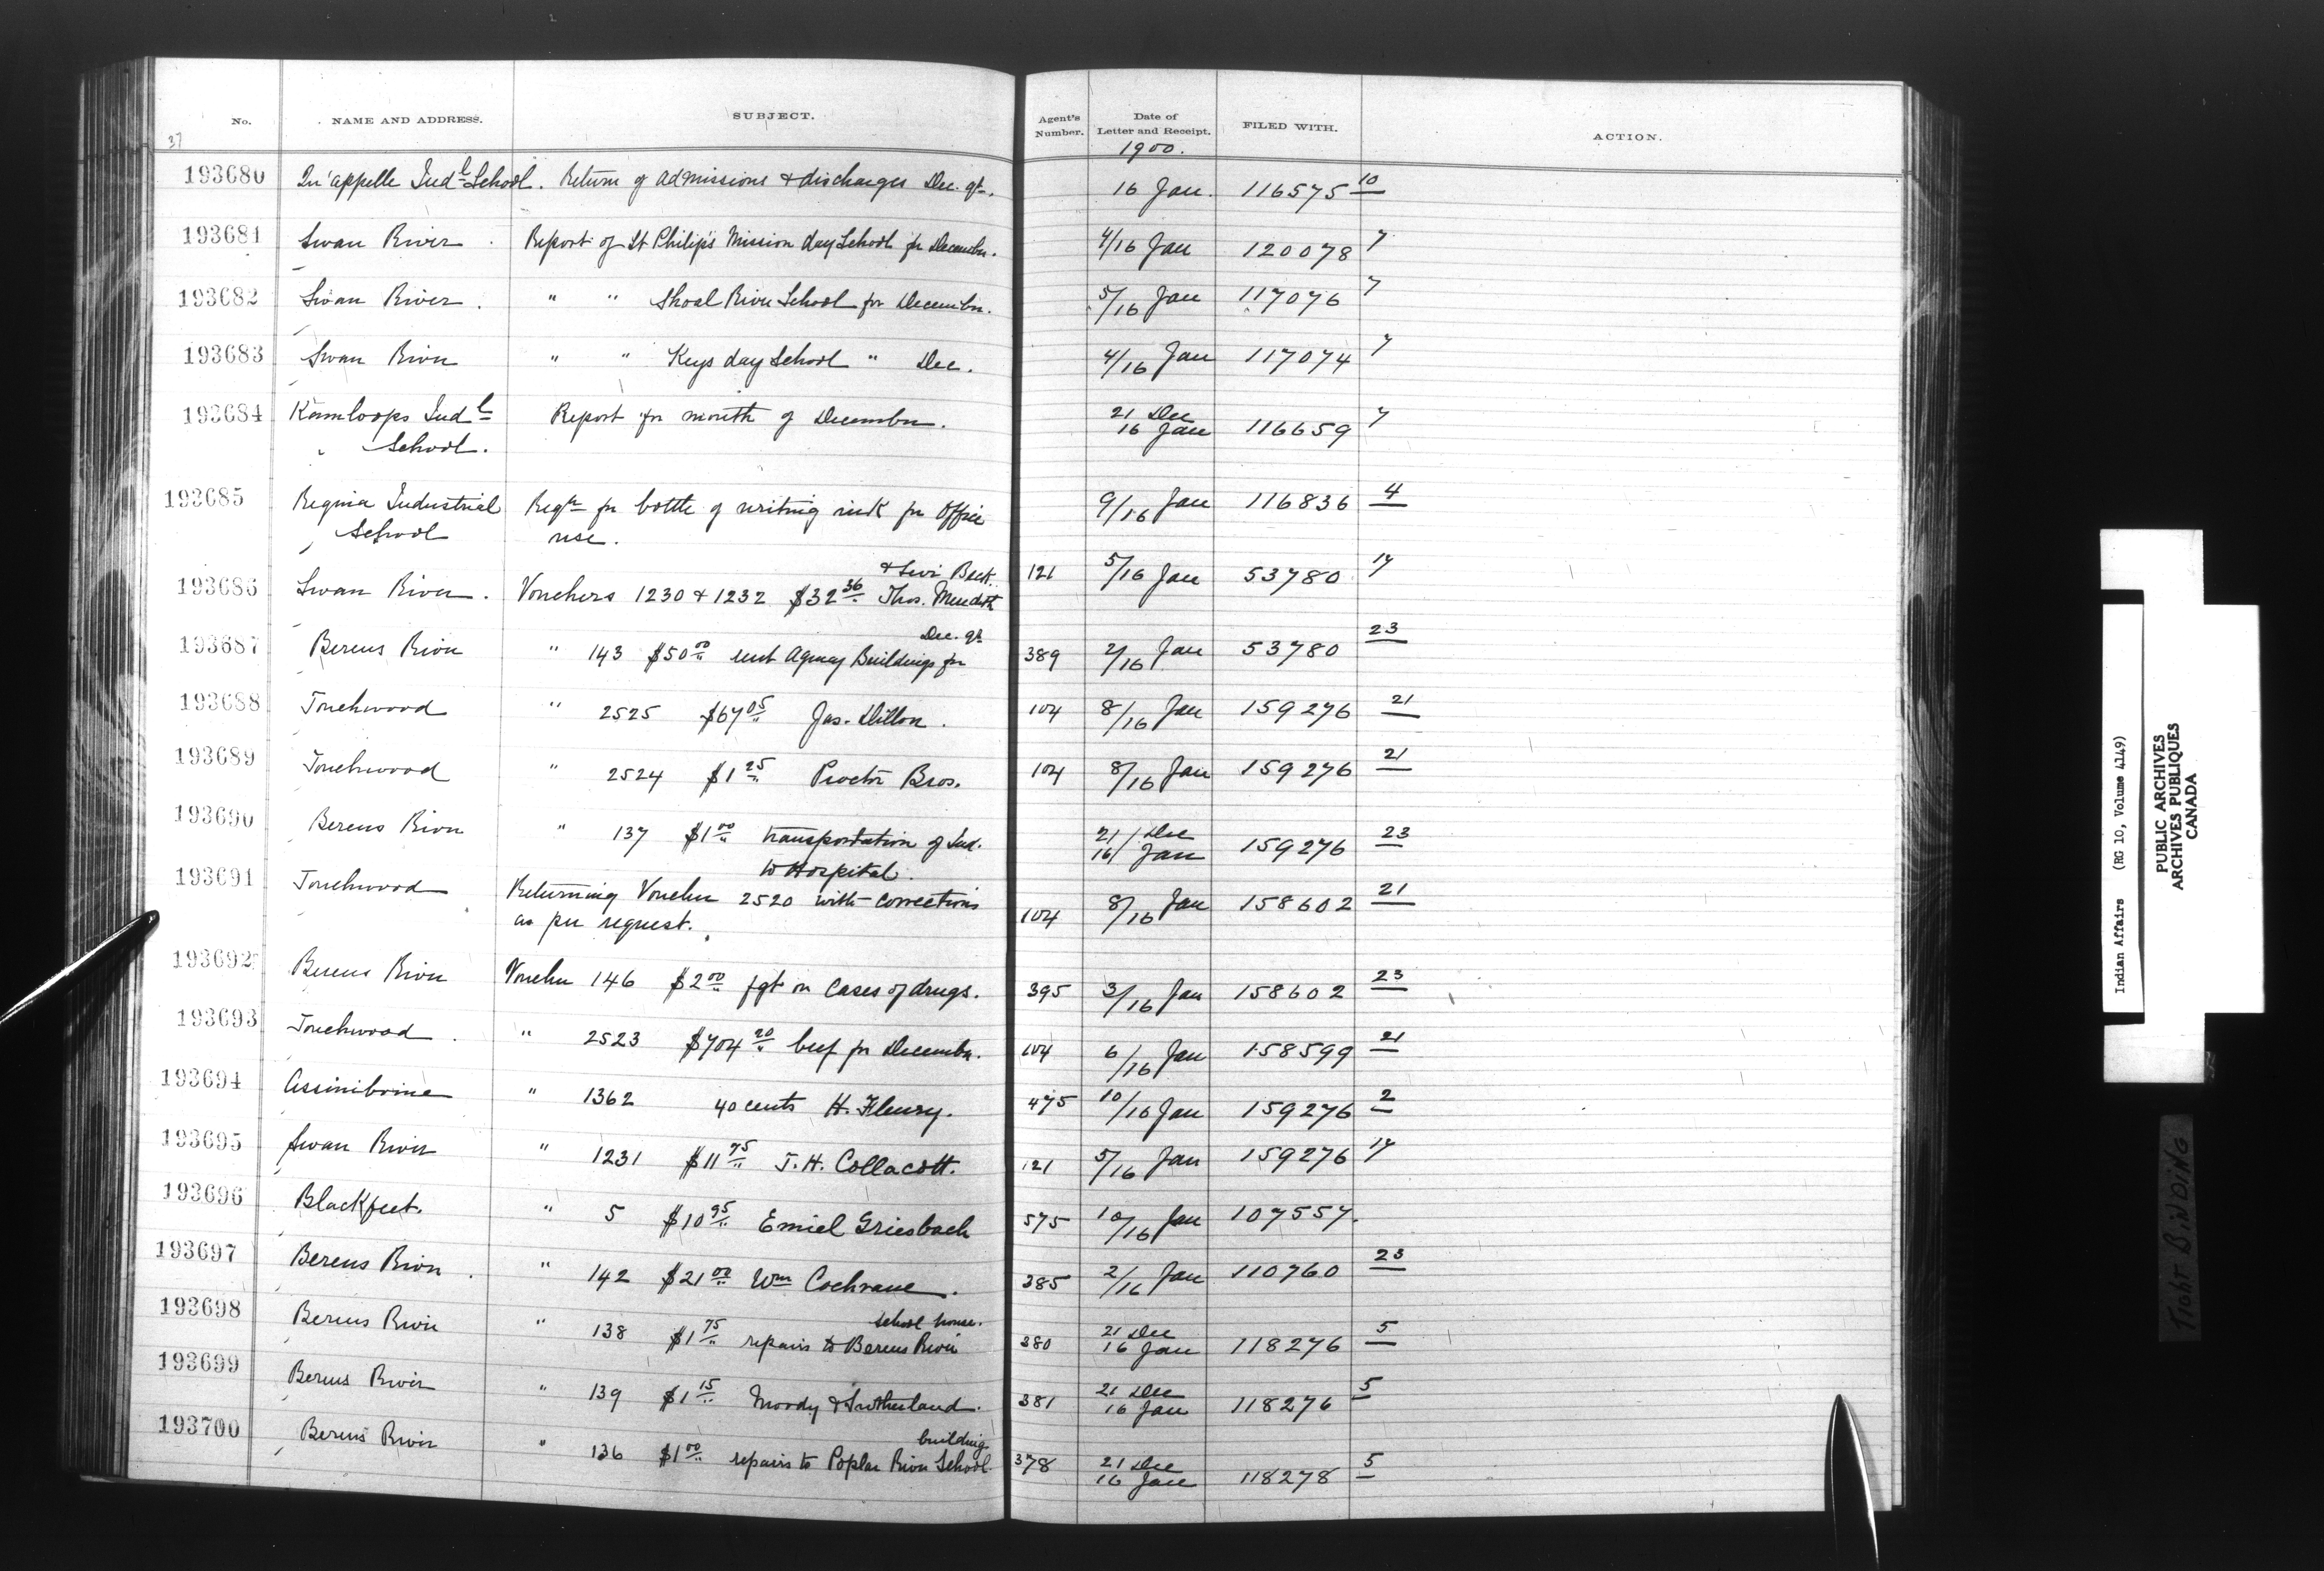 No. NAME AND ADDRESS. SUBJECT. Agent's Number. Date of Letter and Receipt. FILED WITH. ACTION.
37
1900.
193680 Qu'appelle Indl School. Return of admissions & discharges Dec. qr. 16 Jan. 116575 10
193681 Swan River. Report of St Philip's Mission day School for December. 4/16 Jan 120078 7
193682 Swan River. " " Shoal River School for December. 5/16 Jan 117076 7
193683 Swan River " " Keys day School " Dec. 4/16 Jan 117074 7
193684 Kamloops Indl Report for month of December. 21 Dec
School. 16 Jan 116659 7
193685 Regina Industrial Reqn for bottle of writing ink for Office 9/16 Jan 116836 4
School use.
& Levi Beck.
193686 Swan River. Vouchers 1230 & 1232 $32 36 Thos. Meredith 121 5/16 Jan 53780 17
Dec. qr
193687 Berens River " 143 $50 00 rent Agency Buildings for 389 2/16 Jan 53780 23
193688 Touchwood " 2525 $67 05 Jas. Dillon. 104 8/16 Jan 159276 21
193689 Touchwood " 2524 $1 25 Proctor Bros. 104 8/16 Jan 159276 21
193690 Berens River " 137 $1 00 transportation of Ind. 21 Dec
to Hospital. 16 Jan 159276 23
193691 Touchwood Returning Voucher 2520 with corrections 104 8/16 Jan 158602 21
as per request.
193692 Berens River Voucher 146 $2 00 fgt on Cases of drugs. 395 3/16 Jan 158602 23
193693 Touchwood. " 2523 $704 20 beef for December. 104 6/16 Jan 158599 21
193694 Assiniboine " 1362 40 cents H. Fleury. 475 10/16 Jan 159276 2
193695 Swan River " 1231 $11 75 T.H. Collacott. 121 5/16 Jan 159276 17
193696 Blackfeet. " 5 $10 95 Emiel Griesbach 575 10/16 Jan 107557.
193697 Berens River. " 142 $21 00 Wm Cochrane. 385 2/16 Jan 110760 23
school house.
193698 Berens River " 138 $1 75 repairs to Berens River 380 21 Dec
16 Jan 118276 5
193699 Berens River " 139 $1 15 Moody & Sutherland. 381 21 Dec
16 Jan 118276 5
building
193700 Berens River " 136 $1 00 repairs to Poplar River School 378 21 Dec
16 Jan 118278 5
Indian Affairs (RG 10, Volume 4149)
PUBLIC ARCHIVES
ARCHIVES PUBLIQUES
CANADA
TIGHT BINDING